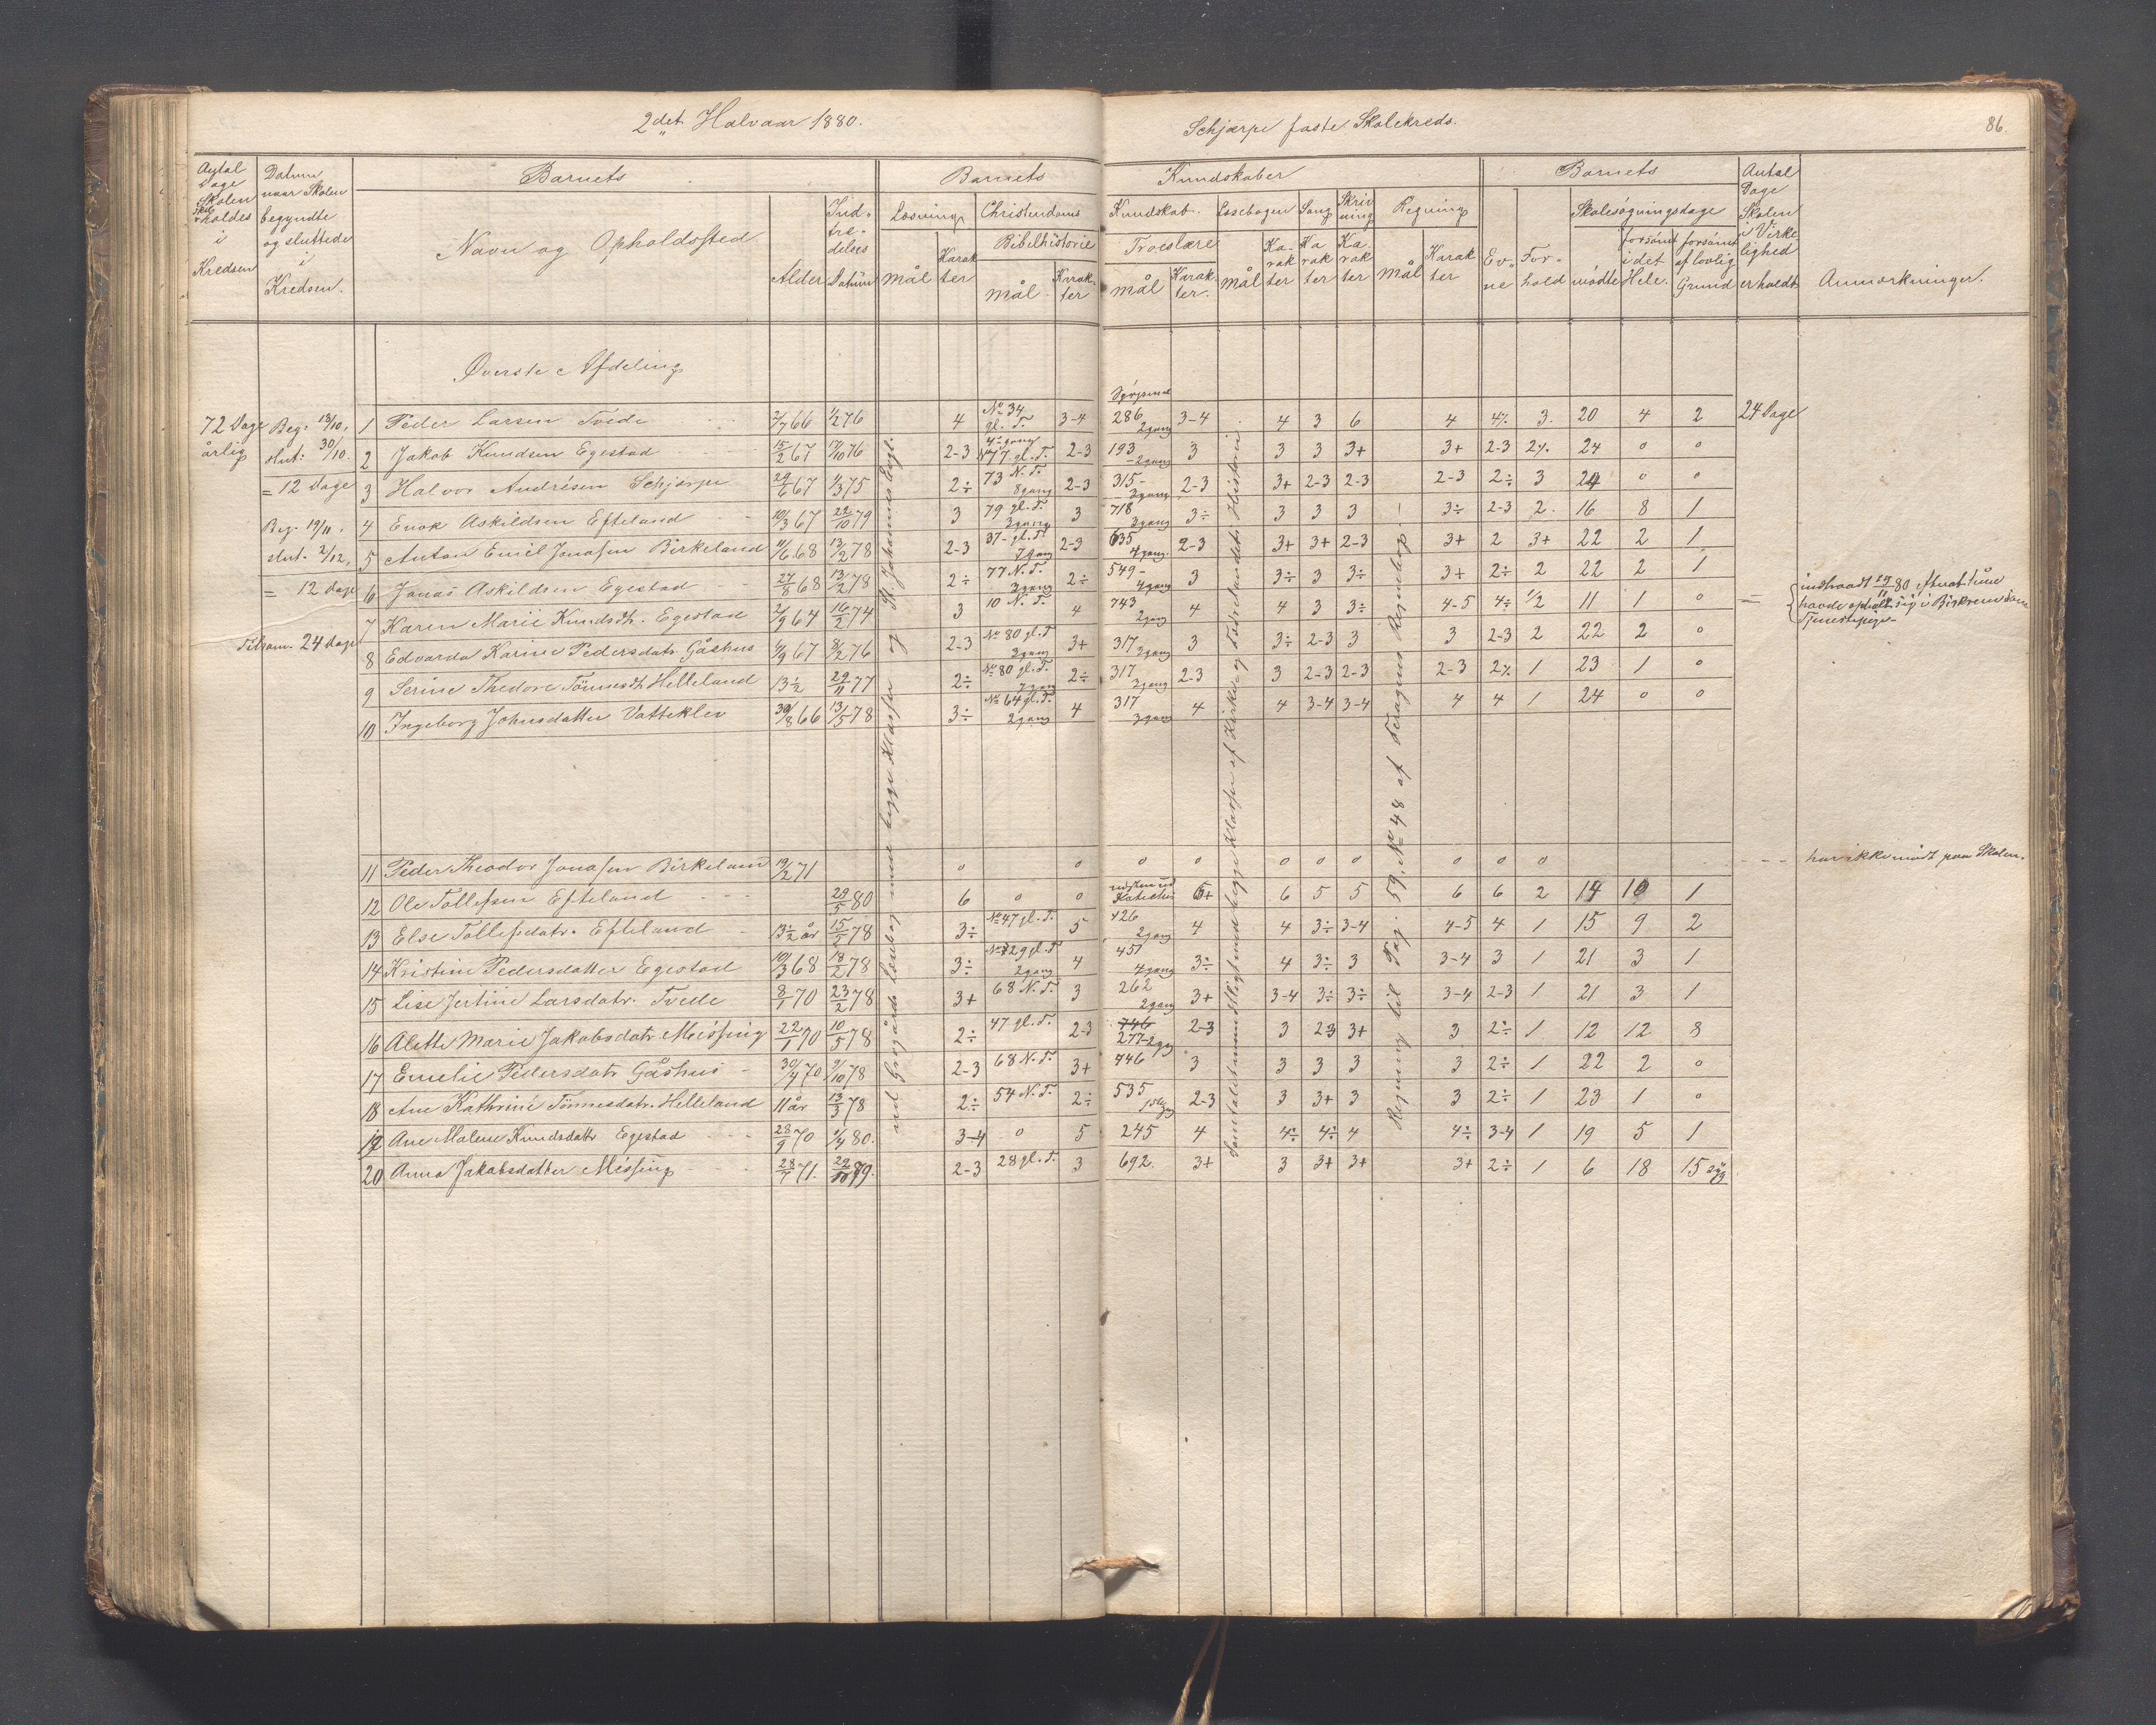 2det Halvaar 1880.
Schjærpe faste Skolekreds.
86.
Antal Dage Skolen skal holdes i Kredsen
Datum naar Skolen begyndte og sluttede i Kredsen.
Barnets
Navn og Opholdssted
Alder
Indtrædelses Datum
Barnets
Kundskaber
Læsning
Mål
Karakter
Christendoms
Kundskab.
Bibelhistorie
Mål
Karakter
Troeslære
Mål
Karakter.
Læsebogen
Mål
Karakter
Sang
Karakter
Skrivning
Karakter
Regning
Mål
Karakter
Barnets
Evne
Forhold
Skolesøgningsdage
mødte
forsømt i det Hele.
forsømt af lovlig Grund
Antal Dage Skolen i Virkelighed er holdt
Anmærkninger.
Øverste Afdeling
72 Dage årlig
Beg. 18/10, slut: 30/10.
= 12 Dage
Beg. 19/11, slut. 2/12,
= 12 dage
Tilsam. 24 dage
1 Peder Larsen Tvede 2/7 66 1/2 76 4 No 34 gl. T. 4 gang 3-4 Spørgsmaal 286 2gang 3-4 4 3 6 4 4% 3. 20 4 2 24 Dage
2 Jakob Knudsen Egestad 15/2 67 17/10 76 2-3 No 77 gl. T. 2-3 193 - 2gang 3 3 3 3+ 3+ 2-3 2% 24 0 0
3 Halvor Andrésen Schjærpe 29/6 67 1/3 75 2÷ 73 N. T. 8gang 2-3 315 - 3gang 2-3 3+ 2-3 2-3 2-3 2÷ 3 24 0 0
4 Enok Askildsen Efteland 10/3 67 22/10 79 3 79 gl. T. 3gang 3 718 3gang 3÷ 3 3 3 3÷ 2-3 2. 16 8 1
5 Anton Emil Jonassen Birkeland 11/6 68 13/2 78 2-3 37- gl. T. 7gang 2-3 635 4gang. 2-3 3+ 3+ 2-3 3+ 2 3+ 22 2 1
6 Jonas Askildsen Egestad 27/8 68 13/2 78 2÷ 77 N. T. 3gang 2÷ 549 - 4gang 3 3÷ 3 3÷ 3+ 2÷ 2 22 2 1
7 Karen Marie Knudsdt. Egestad 2/9 64 16/2 74 3 10 N. T. 4 743 2gang 4 4 3 3÷ 4-5 4÷ 1/2 11 1 0
8 Edvarda Karine Pedersdatr. Gåshus 4/9 67 8/2 76 2-3 No 80 gl. T. 3gang 3+ 317 3gang 3 3÷ 2-3 3 3 2-3 2 22 2 0
9 Serine Thedore Tönnesdt. Helleland 13 1/2 29/11 77 2÷ No 80 gl. T. 7gang 2÷ 317 3gang 2-3 3 2-3 2-3 2-3 2% 1 23 1 0
10 Ingeborg Johnsdatter Vatteklev 30/8 66 13/5 78 3÷ No 64 gl. T. 2gang 4 317 3gang 4 4 3-4 3-4 4 4 1 24 0 0
indtraadt 19/11 80
Tjenestepige
11 Peder Theodor Jonassen Birkeland 19/2 71 0 0 0 0 0 0 0 0 0 0 har ikke mødt paa Skolen.
12 Ole Tollefsen Efteland 29/5 80 6 0 0 6+ 6 5 5 6 6 2 14 10 1
13 Else Tollefsdatr. Efteland 13 1/2 år 15/2 78 3÷ No 47 gl. T. 5 426 2gang 4 4 3÷ 3-4 4-5 4 1 15 9 2
14 Kristine Pedersdatter Egestad 10/3 68 18/2 78 3÷ No 29 gl. T. 2gang 4 451 4gang 3÷ 4 3÷ 3 3-4 3 1 21 3 1
15 Lise Jertine Larsdatr. Tvede 8/1 70 23/2 78 3+ 68 N. T. 3 262 2gang 3+ 3-4 3÷ 3÷ 3-4 2-3 1 21 3 1
16 Alette Marie Jakobsdatr. Missing 22/1 70 10/5 78 2÷ 47 gl. T. 2-3 746 277-2gg 2-3 3 2-3 3+ 3 2÷ 1 12 12 8
17 Emelie Pedersdatr Gåshus 30/4 70 9/10 78 2-3 68 N. T. 3+ 746 3 3 3 3 3 2÷ 1 22 2 0
18 Ane Kathrine Tönnesdatr. Helleland 11 år 13/3 78 2÷ 54 N. T. 2÷ 535 2-3 3 3+ 3 3 2÷ 1 23 1 0
19 Ane Malene Knudsdattr Egestad 28/9 70 1/4 80. 3-4 0 5 245 4 4÷ 4÷ 4 4÷ 3-4 1 19 5 1
20 Anna Jakobsdatter Missing 28/7 71. 29/10 79. 2-3 28 gl. T. 3 692. 3+ 3 3+ 3+ 3+ 2÷ 1 6 18 15 syg
Regning til Pag. 59, No 48 af Feragens Regnebog. -